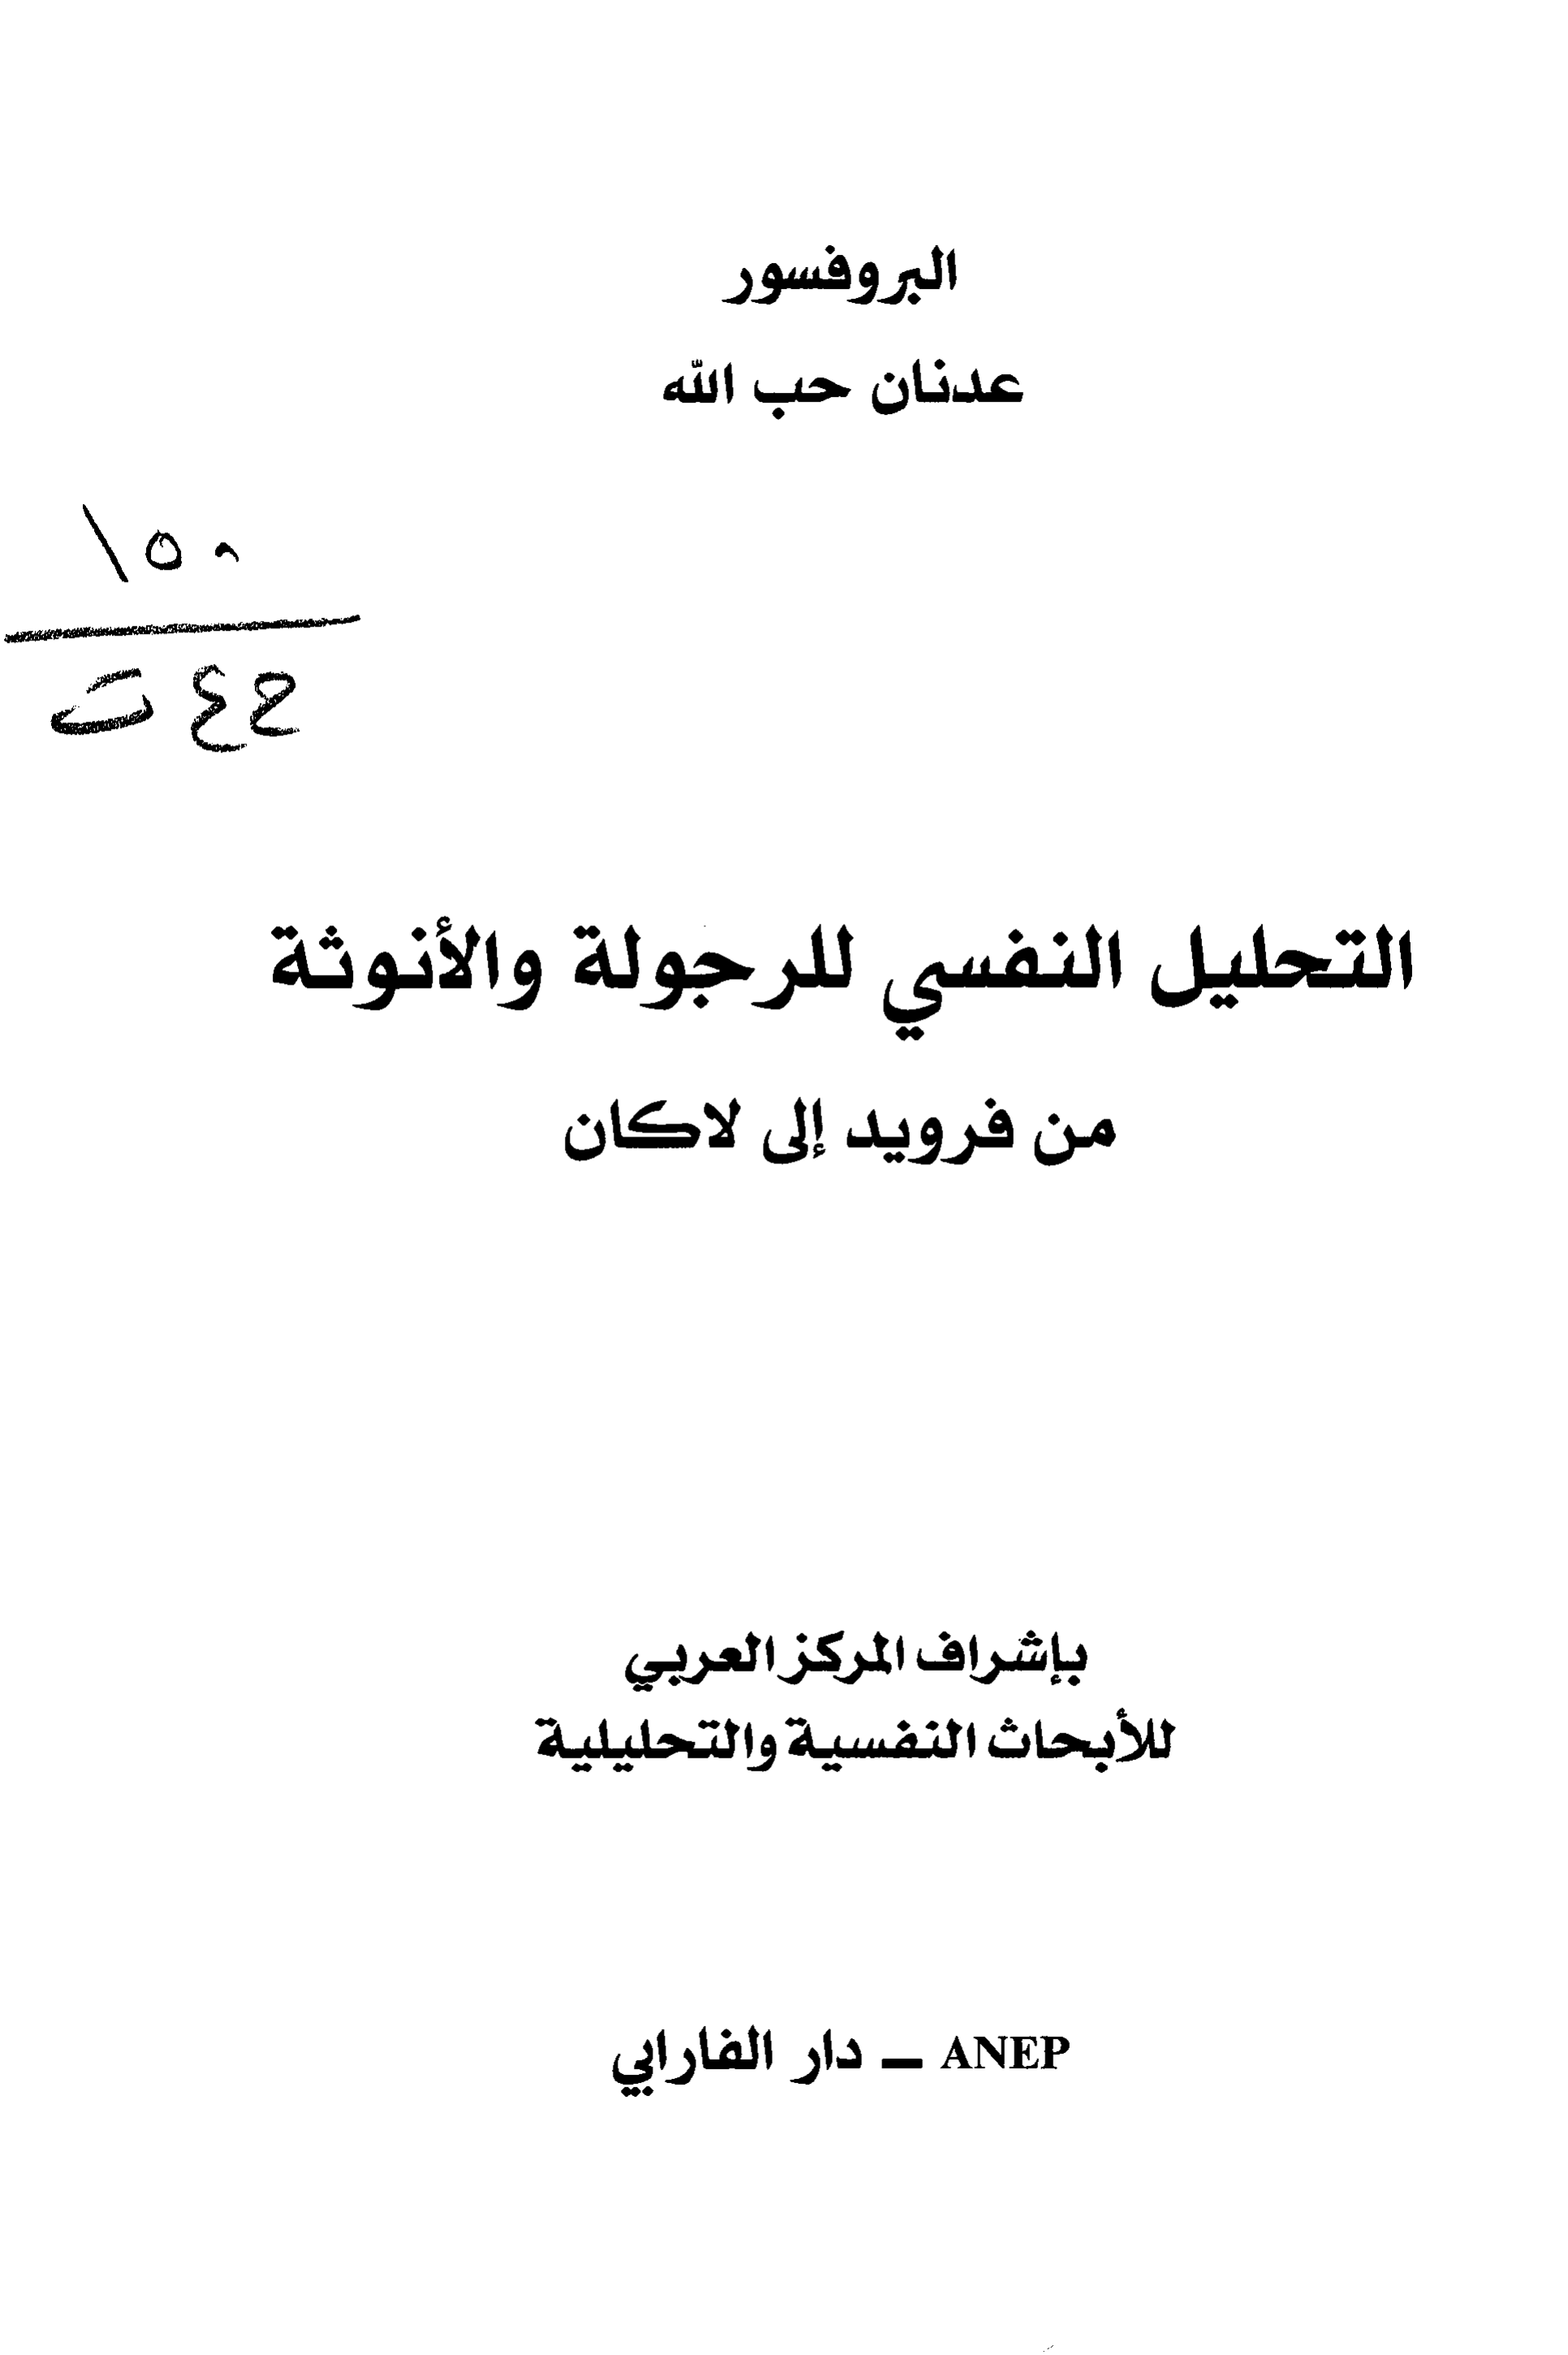 البروفسور
عدنان حب الله
١٥٠
ح ع ت
التحليل النفسي للرجولة والأنوثة
من فرويد إلى لاكان
بإشراف المركز العربي
للأبحاث النفسية والتحليلية
ANEP – دار الفارابي